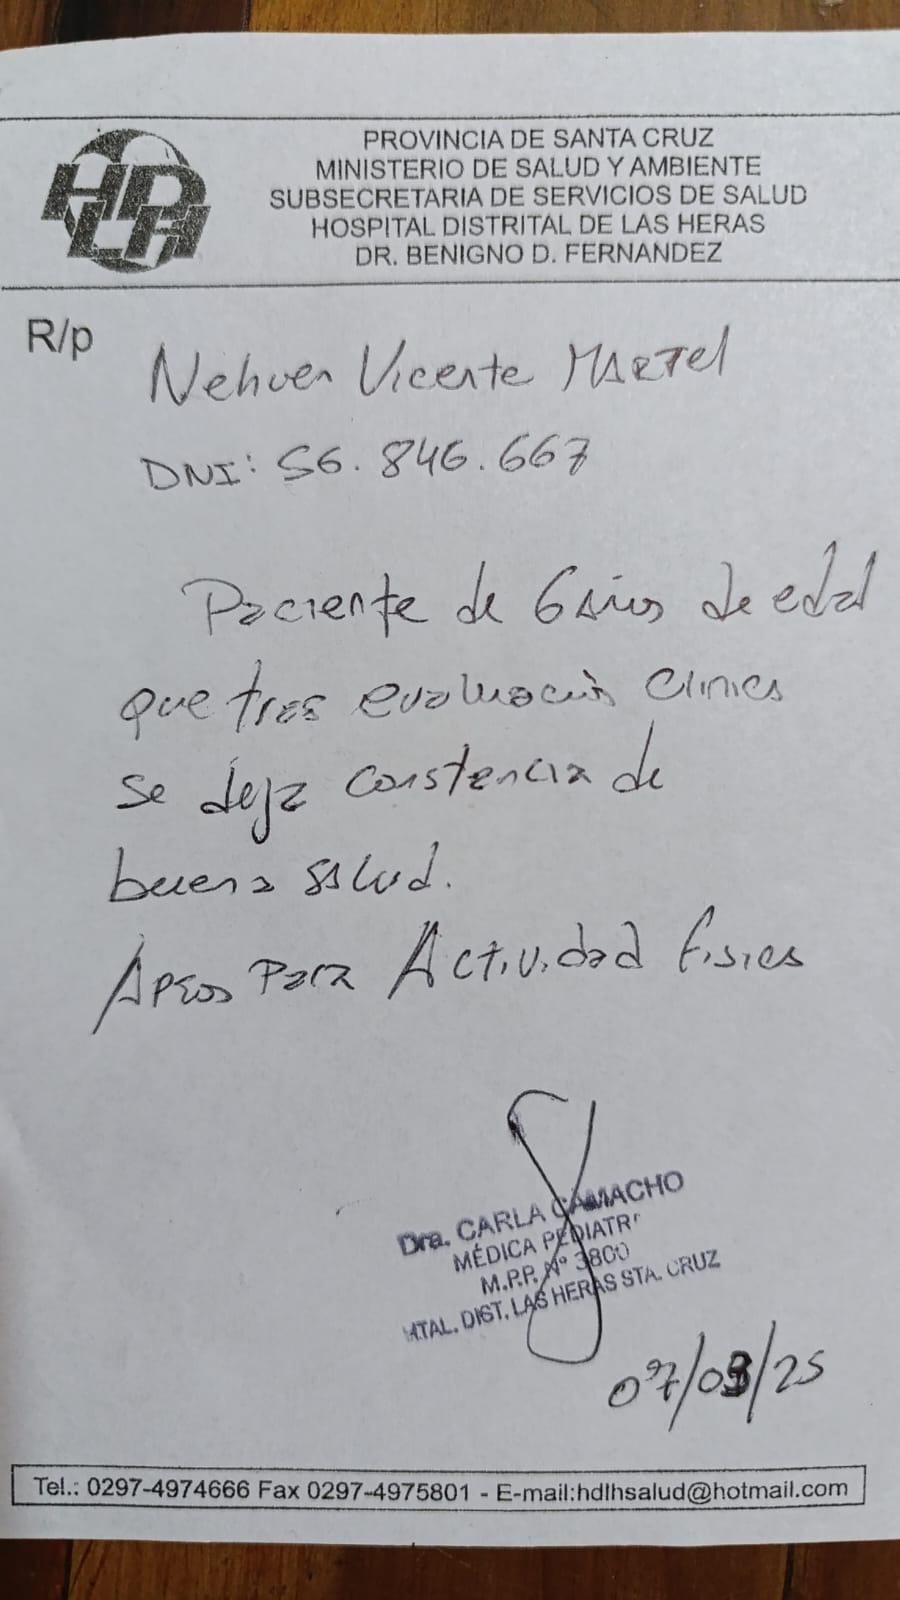 HDLH
PROVINCIA DE SANTA CRUZ
MINISTERIO DE SALUD Y AMBIENTE
SUBSECRETARIA DE SERVICIOS DE SALUD
HOSPITAL DISTRITAL DE LAS HERAS
DR. BENIGNO D. FERNANDEZ
R/p
Nehuen Vicente MARTel
DNI: 56.846.667
Paciente de 6 años de edad
que tras evaluación clinica
se deja constancia de
buena salud.
Apto Para Actividad fisica
Dra. CARLA CAMACHO
MÉDICA PEDIATR
M.P.P. Nº 3800
HTAL. DIST. LAS HERAS STA. CRUZ
07/03/25
Tel.: 0297-4974666 Fax 0297-4975801 - E-mail:hdlhsalud@hotmail.com